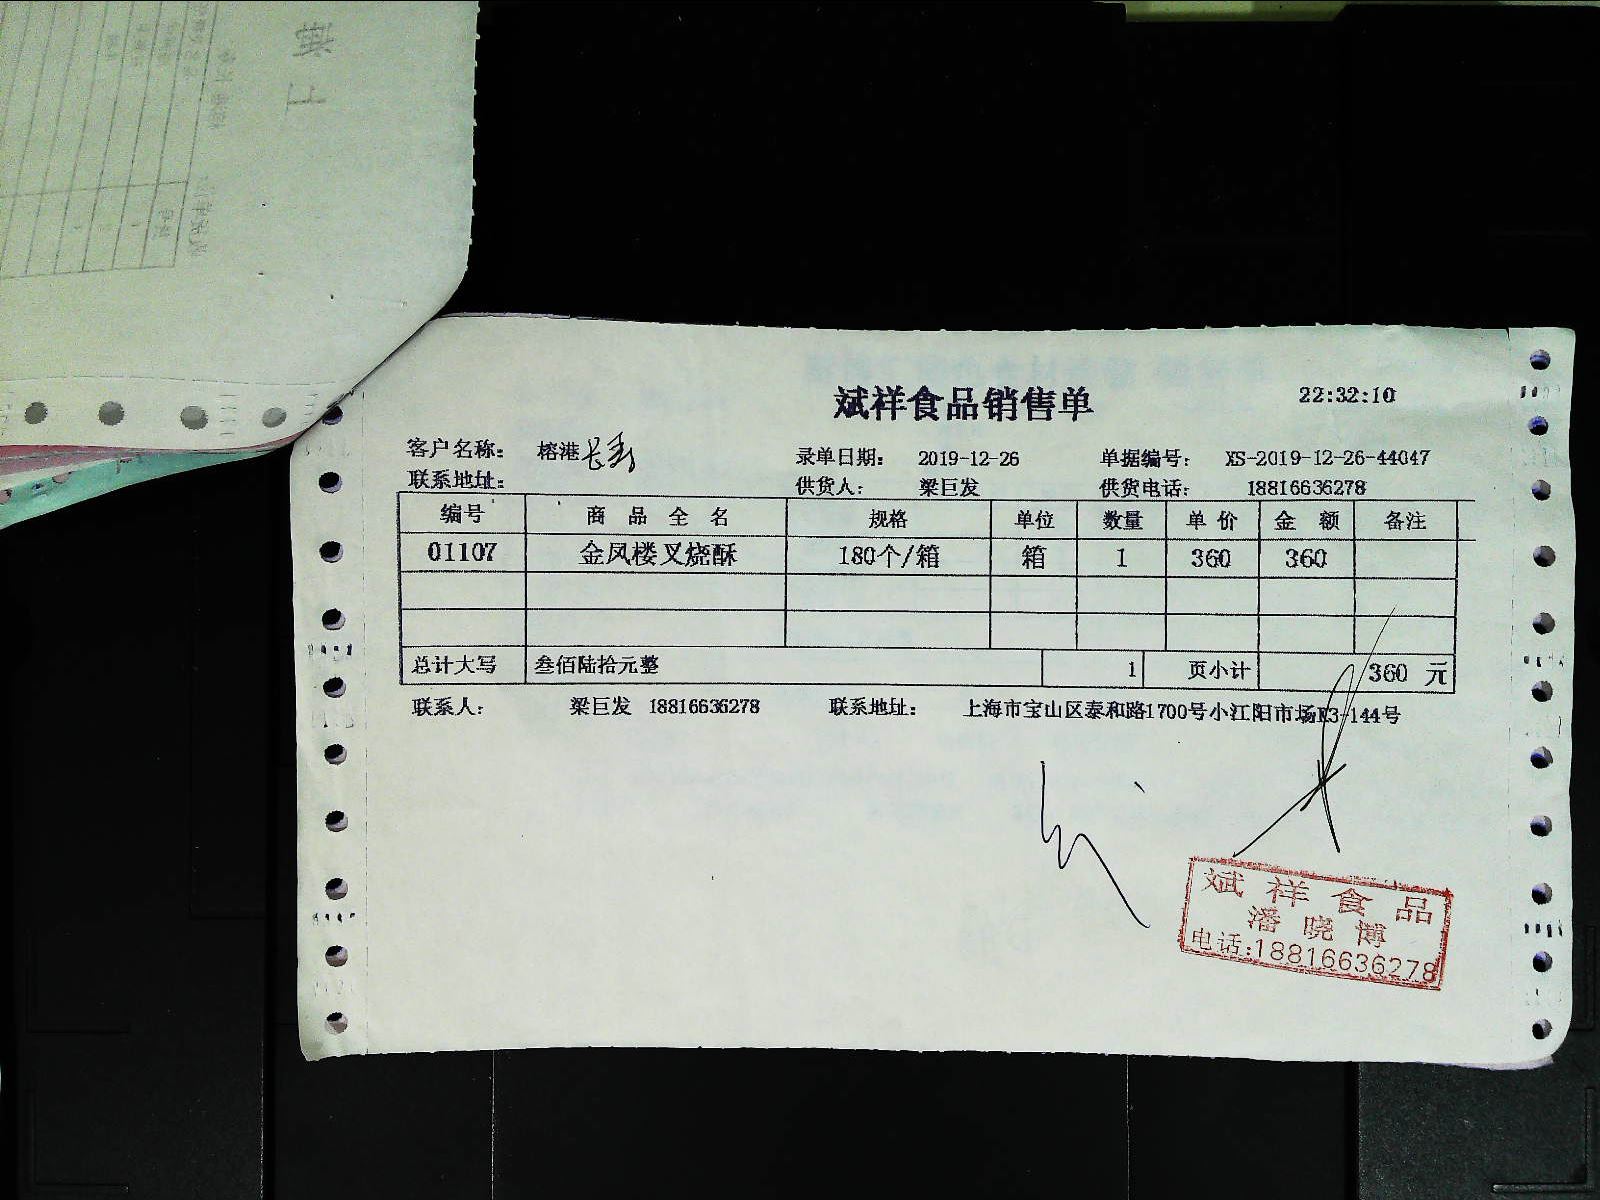 斌祥食品销售单 22:32:10
客户名称: 榕港长寿 录单日期: 2019-12-26 单据编号: XS-2019-12-26-44047
联系地址: 供货人: 梁巨发 供货电话: 18816636278
编号 商品全名 规格 单位 数量 单价 金额 备注
01107 金凤楼叉烧酥 180个/箱 箱 1 360 360
总计大写 叁佰陆拾元整 1 页小计 360 元
联系人: 梁巨发 18816636278 联系地址: 上海市宝山区泰和路1700号小江阳市场E3-144号
斌祥食品
潘晓博
电话:18816636278